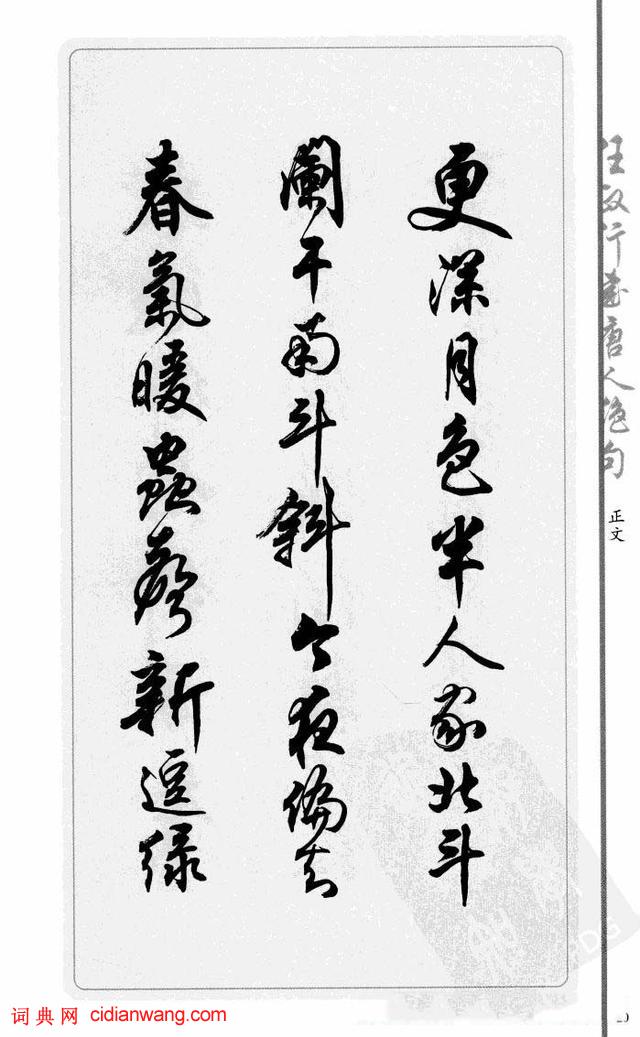 更深月色半人家北斗
闌干南斗斜今夜偏知
春氣暖蟲聲新逗綠
任政行書唐人絕句
正文
词典网 cidianwang.com